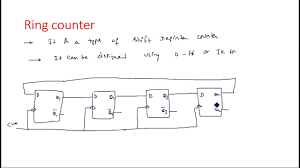 Ring counter
→ It is a type of shift register counter
→ It can be designed using D-ff or JK ff
D Q D Q D Q D Q
Q̄ Q̄ Q̄